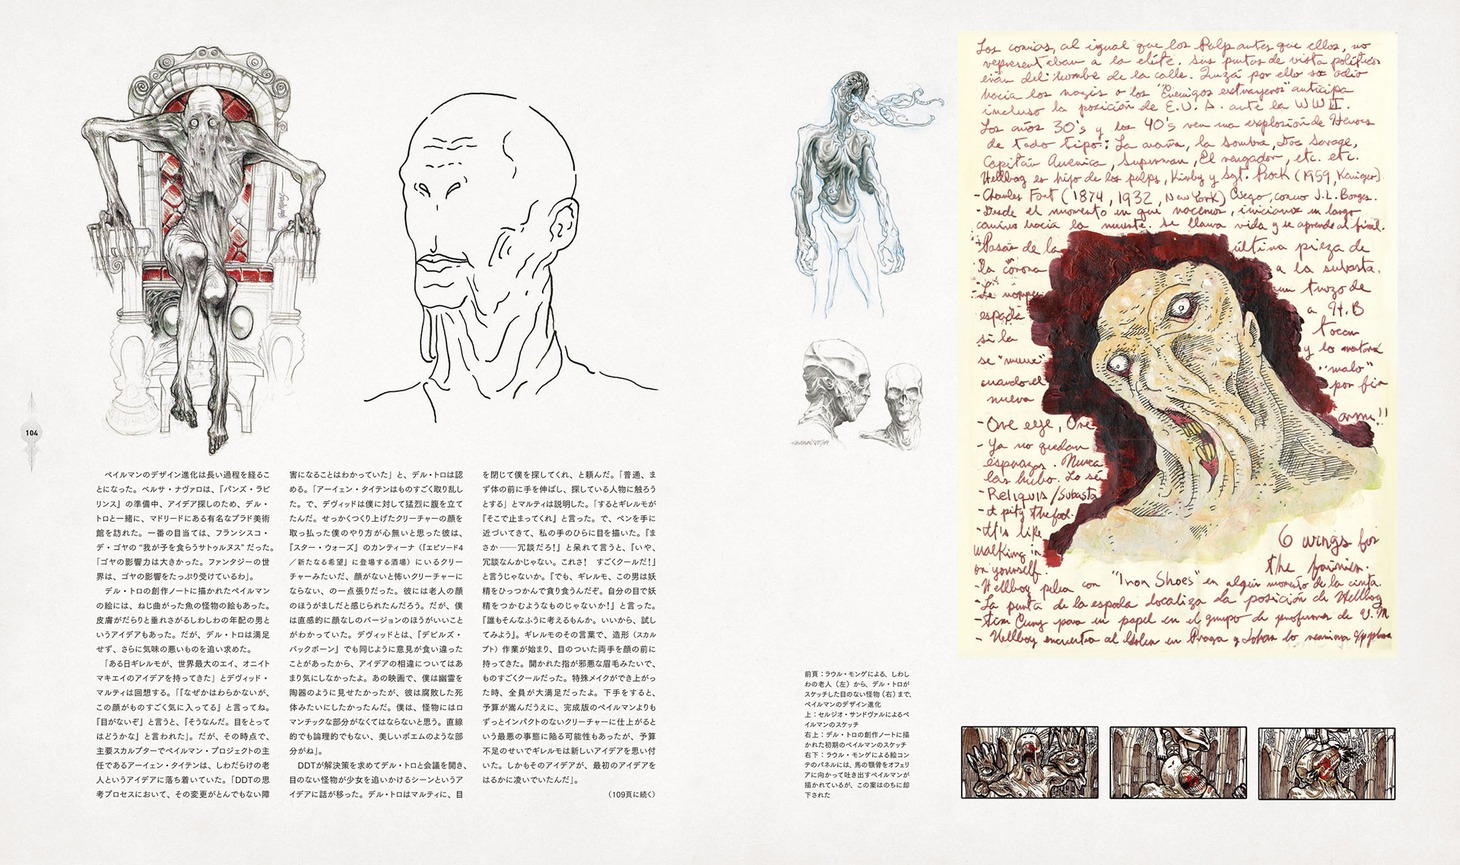 104
ペイルマンのデザイン進化は長い過程を経るこ
とになった。ベルサ・ナヴァロは、『パンズ・ラビ
リンス』の準備中、アイデア探しのため、デル・
トロと一緒に、マドリードにある有名なプラド美術
館を訪れた。一番の目当ては、フランシスコ・
デ・ゴヤの“我が子を食らうサトゥルヌス”だった。
「ゴヤの影響力は大きかった。ファンタジーの世
界は、ゴヤの影響をたっぷり受けているわ」。
デル・トロの創作ノートに描かれたペイルマン
の絵には、ねじ曲がった魚の怪物の絵もあった。
皮膚がだらりと垂れさがるしわしわの年配の男と
いうアイデアもあった。だが、デル・トロは満足
せず、さらに気味の悪いものを追い求めた。
「ある日ギレルモが、世界最大のエイ、オニイト
マキエイのアイデアを持ってきた」とデヴィッド・
マルティは回想する。「『なぜかはわらかないが、
この顔がものすごく気に入ってる』と言ってね。
『目がないぞ』と言うと、『そうなんだ。目をとって
はどうかな』と言われた」。だが、その時点で、
主要スカルプターでペイルマン・プロジェクトの主
任であるアーイェン・タイテンは、しわだらけの老
人というアイデアに落ち着いていた。「DDTの思
考プロセスにおいて、その変更がとんでもない障
害になることはわかっていた」と、デル・トロは認
める。「アーイェン・タイテンはものすごく取り乱し
た。で、デヴィッドは僕に対して猛烈に腹を立て
たんだ。せっかくつくり上げたクリーチャーの顔を
取っ払った僕のやり方が心無いと思った彼は、
『スター・ウォーズ』のカンティーナ（『エピソード4
／新たなる希望』に登場する酒場）にいるクリー
チャーみたいだ、顔がないと怖いクリーチャーに
ならない、の一点張りだった。彼には老人の顔
のほうがましだと感じられたんだろう。だが、僕
は直感的に顔なしのバージョンのほうがいいこと
がわかっていた。デヴィッドとは、『デビルズ・
バックボーン』でも同じように意見が食い違った
ことがあったから、アイデアの相違についてはあ
まり気にしなかったよ。あの映画で、僕は幽霊を
陶器のように見せたかったが、彼は腐敗した死
体みたいにしたかったんだ。僕は、怪物にはロ
マンチックな部分がなくてはならないと思う。直線
的でも論理的でもない、美しいポエムのような部
分がね」。
DDTが解決策を求めてデル・トロと会議を開き、
目のない怪物が少女を追いかけるシーンというア
イデアに話が移った。デル・トロはマルティに、目
を閉じて僕を探してくれ、と頼んだ。「普通、ま
ず体の前に手を伸ばし、探している人物に触ろう
とする」とマルティは説明した。「するとギレルモが
『そこで止まってくれ』と言った。で、ペンを手に
近づいてきて、私の手のひらに目を描いた。『ま
さか――冗談だろ！』と呆れて言うと、『いや、
冗談なんかじゃない。これさ！　すごくクールだ！』
と言うじゃないか。『でも、ギレルモ、この男は妖
精をひっつかんで貪り食うんだぞ。自分の目で妖
精をつかむようなものじゃないか！』と言った。
『誰もそんなふうに考えるもんか。いいから、試し
てみよう』。ギレルモのその言葉で、造形（スカル
プト）作業が始まり、目のついた両手を顔の前に
持ってきた。開かれた指が邪悪な眉毛みたいで、
ものすごくクールだった。特殊メイクができ上がっ
た時、全員が大満足だったよ。下手をすると、
予算が嵩んだうえに、完成版のペイルマンよりも
ずっとインパクトのないクリーチャーに仕上がると
いう最悪の事態に陥る可能性もあったが、予算
不足のせいでギレルモは新しいアイデアを思い付
いた。しかもそのアイデアが、最初のアイデアを
はるかに凌いでいたんだ」。
（109頁に続く）
前頁：ラウル・モンゲによる、しわし
わの老人（左）から、デル・トロが
スケッチした目のない怪物（右）まで、
ペイルマンのデザイン進化
上：セルジオ・サンドヴァルによるペ
イルマンのスケッチ
右上：デル・トロの創作ノートに描
かれた初期のペイルマンのスケッチ
右下：ラウル・モンゲによる絵コン
テのパネルには、馬の顎骨をオフェリ
アに向かって吐き出すペイルマンが
描かれているが、この案はのちに却
下された
Los comics, al igual que los Pulp antes que ellos, no
representaban a la elite. sus puntos de vista políticos
eran del hombre de la calle. Quizá por ello su odio
hacia los nazis o los "Enemigos extranjeros" anticipa
incluso la posición de E.U.A. ante la WWII.
Los años 30's y los 40's ven una explosión de Heroes
de todo tipo: La araña, la sombra, Doc Savage,
Capitán America, Superman, El vengador, etc. etc.
Hellboy es hijo de los pulps, Kirby y Sgt. Rock (1959, Kanigher)
-Charles Fort (1874, 1932, New York) Ciego, como J.L. Borges.
-Desde el momento en que nacemos, iniciamos un largo
camino hacia la muerte. Se llama vida y se aprende al final.
-Pasar de la última pieza de
la corona a la subasta.
un trozo de
espada a H.B
si la tocan
se "mueve" y lo
cuando el "malo"
nueva por fin
arma!!
-One eye, One
-Ya no quedan
esperanzas. Nunca
las hubo. Lo sé
-Reliquia/Subasta
-I pity the fool.
-It's like
walking in
on yourself.
6 wings for
the fairies.
-Hellboy pelea con "Iron Shoes" en algún momento de la cinta.
-La punta de la espada localiza la posición de Hellboy
-Tim Curry para un papel en el grupo de profesores de U.M
-Hellboy encuentra al Golem en Praga y Johan lo reanima